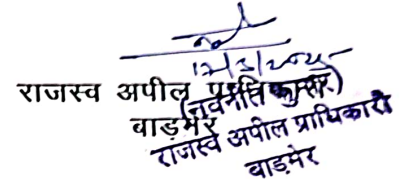 12/3/2025
राजस्व अपील प्राधिकारी
(नवनीत कुमार)
बाड़मेर
राजस्व अपील प्राधिकारी
बाड़मेर